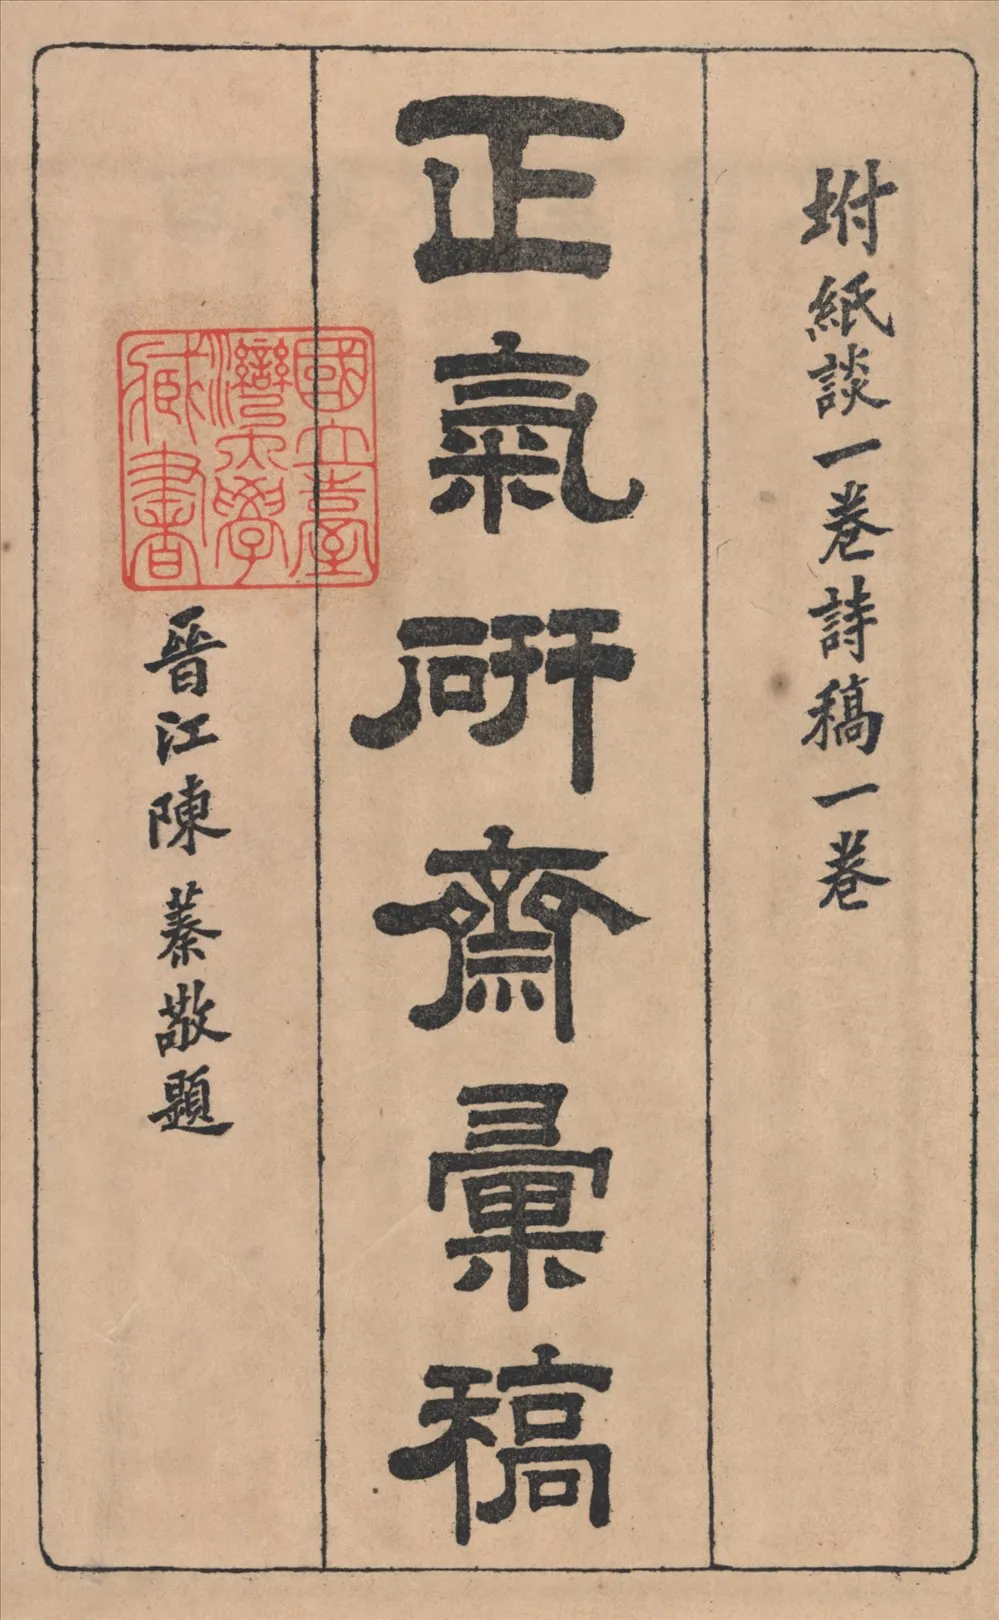 坿紙談一卷詩稿一卷
正氣研齋彙稿
國立臺
灣大學
藏書
晉江陳蓁敬題